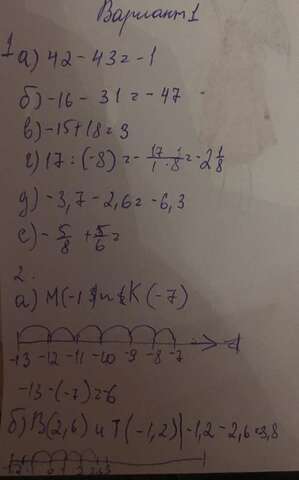 Вариант 1
1
а) 42 - 43 = -1
б) -16 - 31 = -47
в) -15 + 18 = 3
г) 17 : (-8) = - 17/1 · 1/8 = -2 1/8
д) -3,7 - 2,6 = -6,3
е) - 5/8 + 5/6 =
2.
а) М(-13) и К(-7)
-13 -12 -11 -10 -9 -8 -7
-13 - (-7) = -6
б) В(2,6) и Т(-1,2) |-1,2 - 2,6 = 3,8